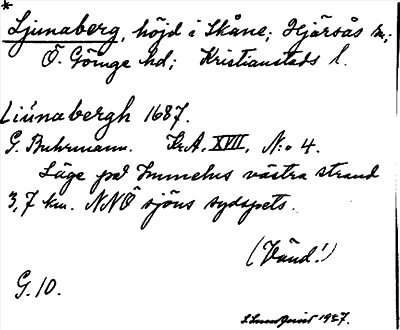 *
Ljunaberg, höjd i Skåne; Hjärsås sn;
Ö. Göinge hd; Kristianstads l.
Liúnabergh 1687.
G. Buhrmann. Kr.A. XVII, N:o 4.
Läge på Immelns västra strand
3,7 km. NNÖ sjöns sydspets.
(Vänd!)
G. 10.
S. Lundquist 1927.